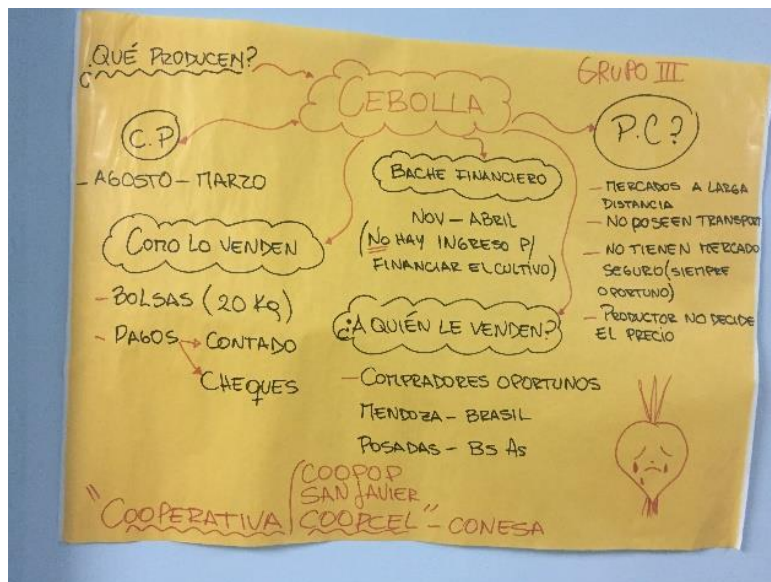 ¿QUÉ PRODUCEN?
GRUPO III
CEBOLLA
C.P
- AGOSTO - MARZO
COMO LO VENDEN
- BOLSAS (20 Kg)
- PAGOS → CONTADO
→ CHEQUES
BACHE FINANCIERO
NOV - ABRIL
(NO HAY INGRESO P/
FINANCIAR EL CULTIVO)
¿A QUIÉN LE VENDEN?
- COMPRADORES OPORTUNOS
MENDOZA - BRASIL
POSADAS - BS AS
P.C?
- MERCADOS A LARGA
DISTANCIA
- NO POSEEN TRANSPORT
- NO TIENEN MERCADO
SEGURO (SIEMPRE
OPORTUNO)
- PRODUCTOR NO DECIDE
EL PRECIO
COOPOP
SAN JAVIER
"COOPERATIVA COOPCEL" - CONESA